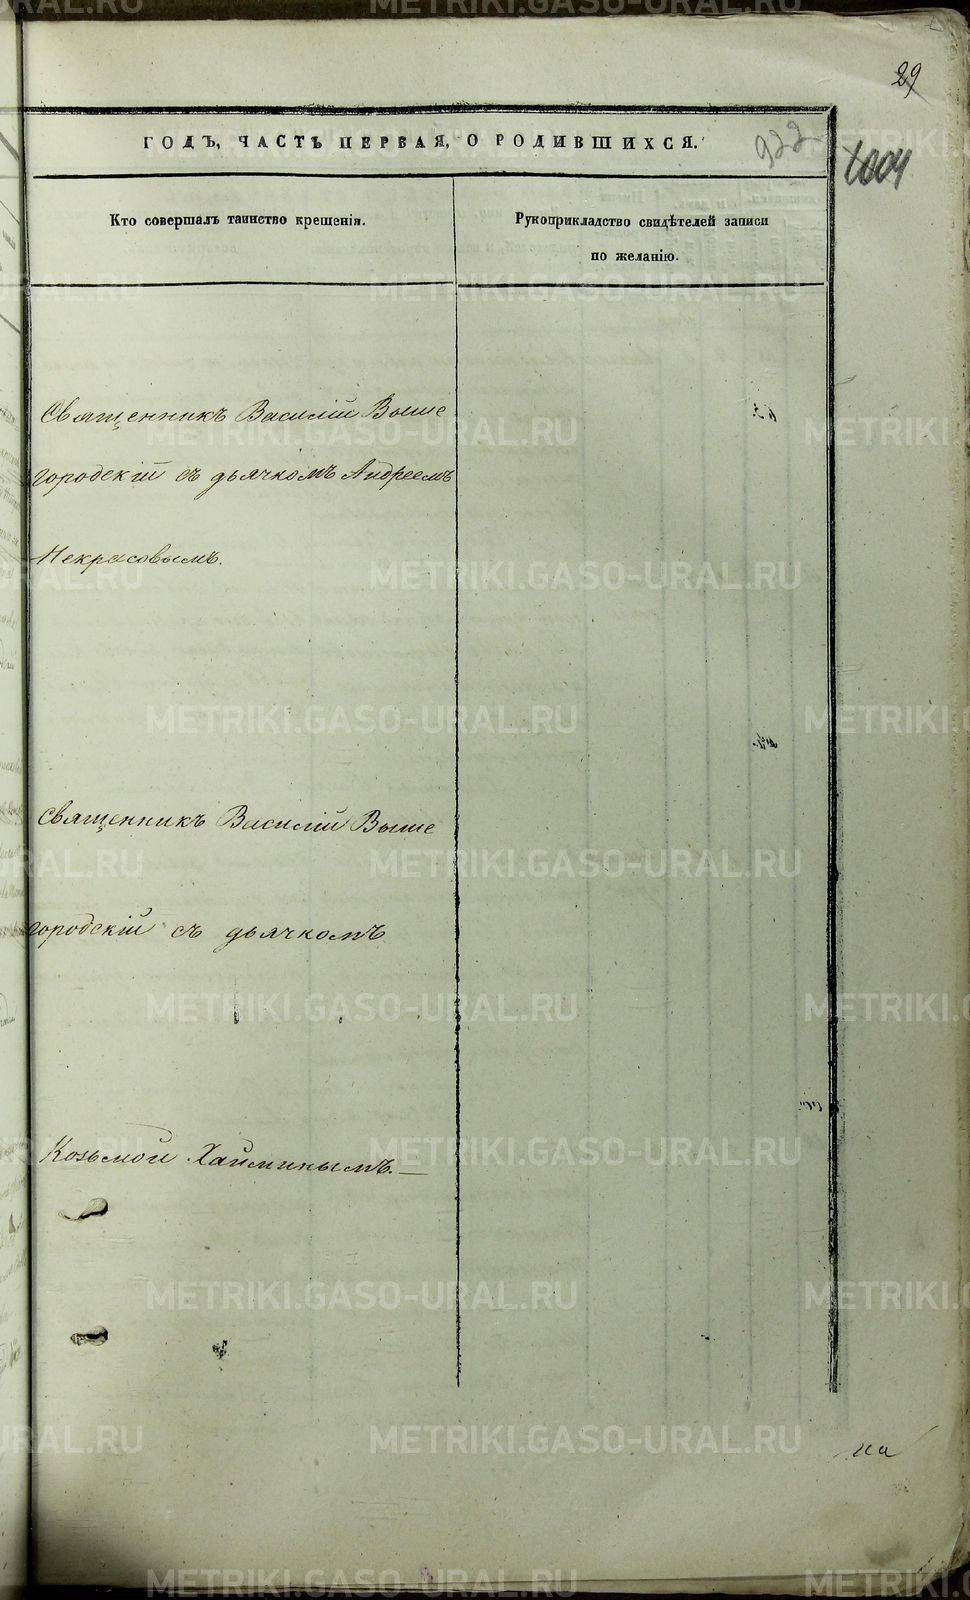 29
ГОДЪ, ЧАСТЬ ПЕРВАЯ, О РОДИВШИХСЯ.
922
1004
Кто совершалъ таинство крещенія.
Рукоприкладство свидѣтелей записи
по желанію.
Священникъ Василій Выше
городскій съ дьячкомъ Андреемъ
Некрасовымъ.
Священникъ Василій Выше
городскій съ дьячкомъ
Козьмой Хайминымъ.—
на
METRIKI.GASO-URAL.RU